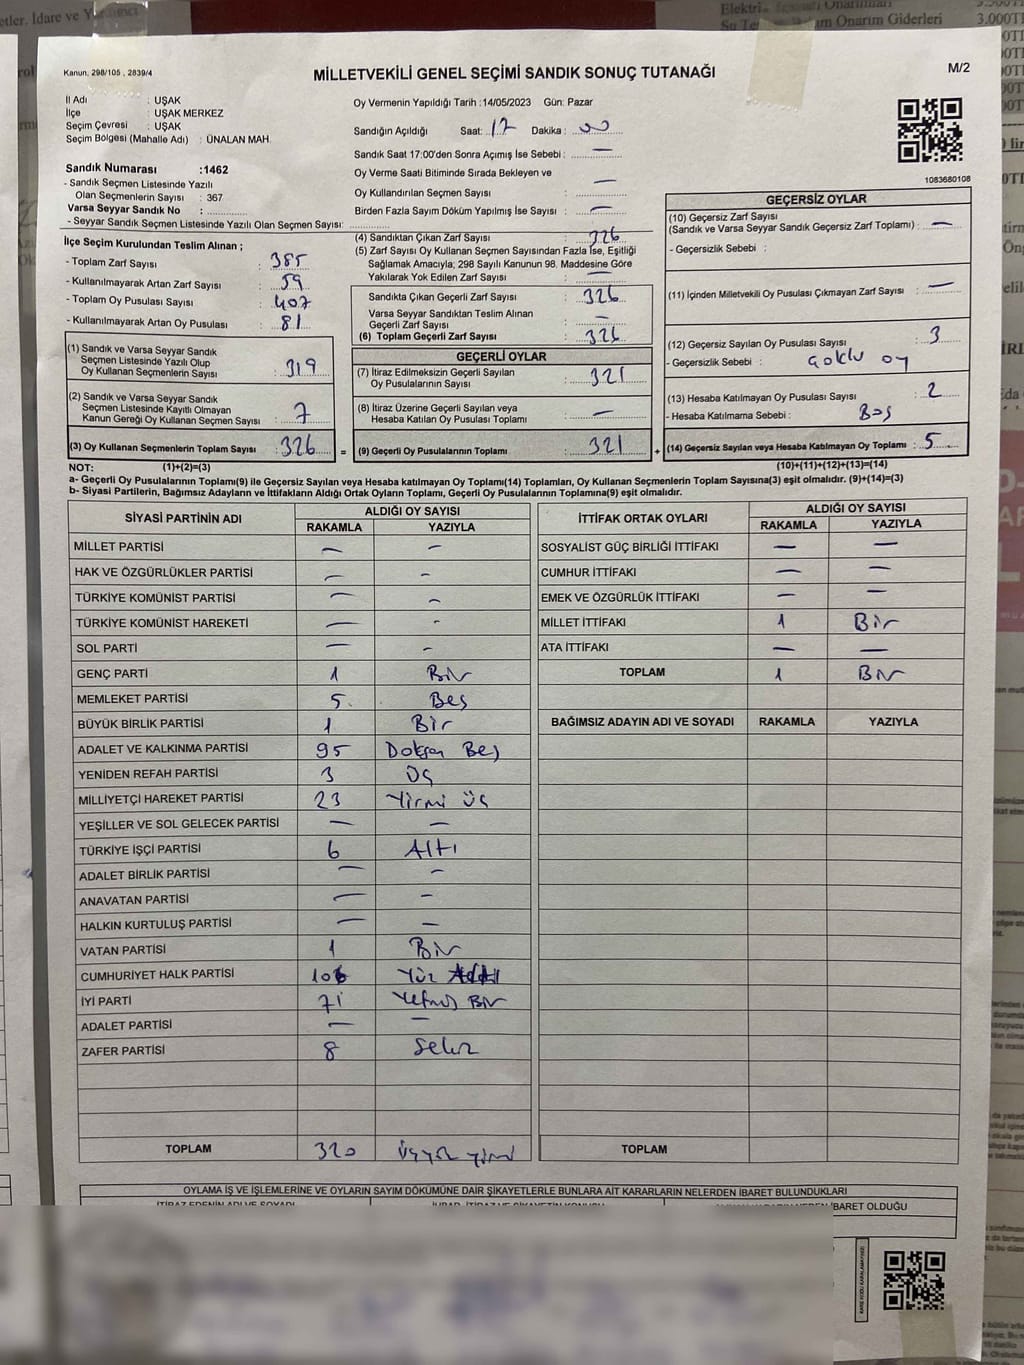 Kanun, 298/105 , 2839/4
MİLLETVEKİLİ GENEL SEÇİMİ SANDIK SONUÇ TUTANAĞI
M/2
İl Adı : UŞAK
İlçe : UŞAK MERKEZ
Seçim Çevresi : UŞAK
Seçim Bölgesi (Mahalle Adı) : ÜNALAN MAH.
Sandık Numarası :1462
- Sandık Seçmen Listesinde Yazılı
Olan Seçmenlerin Sayısı : 367
Varsa Seyyar Sandık No :
- Seyyar Sandık Seçmen Listesinde Yazılı Olan Seçmen Sayısı:
Oy Vermenin Yapıldığı Tarih :14/05/2023 Gün: Pazar
Sandığın Açıldığı Saat: 17 Dakika : 00
Sandık Saat 17:00'den Sonra Açımış İse Sebebi : —
Oy Verme Saati Bitiminde Sırada Bekleyen ve
Oy Kullandırılan Seçmen Sayısı : —
Birden Fazla Sayım Döküm Yapılmış İse Sayısı : —
1083680108
İlçe Seçim Kurulundan Teslim Alınan ;
- Toplam Zarf Sayısı : 385
- Kullanılmayarak Artan Zarf Sayısı : 59
- Toplam Oy Pusulası Sayısı : 407
- Kullanılmayarak Artan Oy Pusulası : 81
(1) Sandık ve Varsa Seyyar Sandık
Seçmen Listesinde Yazılı Olup
Oy Kullanan Seçmenlerin Sayısı : 319
(2) Sandık ve Varsa Seyyar Sandık
Seçmen Listesinde Kayıtlı Olmayan
Kanun Gereği Oy Kullanan Seçmen Sayısı : 7
(3) Oy Kullanan Seçmenlerin Toplam Sayısı : 326 =
(4) Sandıktan Çıkan Zarf Sayısı : 326
(5) Zarf Sayısı Oy Kullanan Seçmen Sayısından Fazla İse, Eşitliği
Sağlamak Amacıyla; 298 Sayılı Kanunun 98. Maddesine Göre
Yakılarak Yok Edilen Zarf Sayısı : —
Sandıkta Çıkan Geçerli Zarf Sayısı : 326
Varsa Seyyar Sandıktan Teslim Alınan
Geçerli Zarf Sayısı : —
(6) Toplam Geçerli Zarf Sayısı : 326
GEÇERLİ OYLAR
(7) İtiraz Edilmeksizin Geçerli Sayılan
Oy Pusulalarının Sayısı : 321
(8) İtiraz Üzerine Geçerli Sayılan veya
Hesaba Katılan Oy Pusulası Toplamı : —
(9) Geçerli Oy Pusulalarının Toplamı : 321 +
GEÇERSİZ OYLAR
(10) Geçersiz Zarf Sayısı
(Sandık ve Varsa Seyyar Sandık Geçersiz Zarf Toplamı) : —
- Geçersizlik Sebebi :
(11) İçinden Milletvekili Oy Pusulası Çıkmayan Zarf Sayısı : —
(12) Geçersiz Sayılan Oy Pusulası Sayısı : 3
- Geçersizlik Sebebi : Çoklu oy
(13) Hesaba Katılmayan Oy Pusulası Sayısı : 2
- Hesaba Katılmama Sebebi : Boş
(14) Geçersiz Sayılan veya Hesaba Katılmayan Oy Toplamı : 5
NOT: (1)+(2)=(3)
(10)+(11)+(12)+(13)=(14)
a- Geçerli Oy Pusulalarının Toplamı(9) ile Geçersiz Sayılan veya Hesaba katılmayan Oy Toplamı(14) Toplamları, Oy Kullanan Seçmenlerin Toplam Sayısına(3) eşit olmalıdır. (9)+(14)=(3)
b- Siyasi Partilerin, Bağımsız Adayların ve İttifakların Aldığı Ortak Oyların Toplamı, Geçerli Oy Pusulalarının Toplamına(9) eşit olmalıdır.
SİYASİ PARTİNİN ADI ALDIĞI OY SAYISI
RAKAMLA YAZIYLA
MİLLET PARTİSİ — —
HAK VE ÖZGÜRLÜKLER PARTİSİ — —
TÜRKİYE KOMÜNİST PARTİSİ — —
TÜRKİYE KOMÜNİST HAREKETİ — —
SOL PARTİ — —
GENÇ PARTİ 1 Bir
MEMLEKET PARTİSİ 5 Beş
BÜYÜK BİRLİK PARTİSİ 1 Bir
ADALET VE KALKINMA PARTİSİ 95 Doksan Beş
YENİDEN REFAH PARTİSİ 3 Üç
MİLLİYETÇİ HAREKET PARTİSİ 23 Yirmi üç
YEŞİLLER VE SOL GELECEK PARTİSİ — —
TÜRKİYE İŞÇİ PARTİSİ 6 Altı
ADALET BİRLİK PARTİSİ — —
ANAVATAN PARTİSİ — —
HALKIN KURTULUŞ PARTİSİ — —
VATAN PARTİSİ 1 Bir
CUMHURİYET HALK PARTİSİ 106 Yüz Altı
İYİ PARTİ 71 Yetmiş Bir
ADALET PARTİSİ — —
ZAFER PARTİSİ 8 Sekiz
TOPLAM 320 Üçyüz yirmi
İTTİFAK ORTAK OYLARI ALDIĞI OY SAYISI
RAKAMLA YAZIYLA
SOSYALİST GÜÇ BİRLİĞİ İTTİFAKI — —
CUMHUR İTTİFAKI — —
EMEK VE ÖZGÜRLÜK İTTİFAKI — —
MİLLET İTTİFAKI 1 Bir
ATA İTTİFAKI — —
TOPLAM 1 Bir
BAĞIMSIZ ADAYIN ADI VE SOYADI RAKAMLA YAZIYLA
TOPLAM
OYLAMA İŞ VE İŞLEMLERİNE VE OYLARIN SAYIM DÖKÜMÜNE DAİR ŞİKAYETLERLE BUNLARA AİT KARARLARIN NELERDEN İBARET BULUNDUKLARI
İTİRAZ EDENİN ADI VE SOYADI
İBARET OLDUĞU